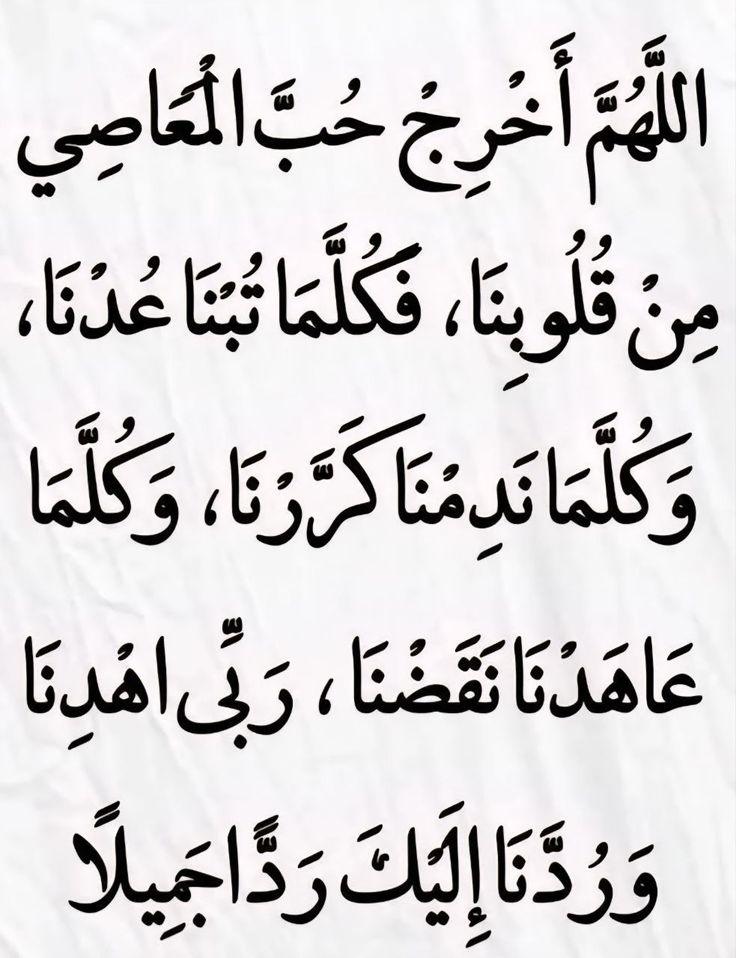 اللَّهُمَّ أَخْرِجْ حُبَّ الْمَعَاصِي
مِنْ قُلُوبِنَا، فَكُلَّمَا تُبْنَا عُدْنَا،
وَكُلَّمَا نَدِمْنَا كَرَّرْنَا، وَكُلَّمَا
عَاهَدْنَا نَقَضْنَا، رَبِّى اهْدِنَا
وَرُدَّنَا إِلَيْكَ رَدًّا جَمِيلًا